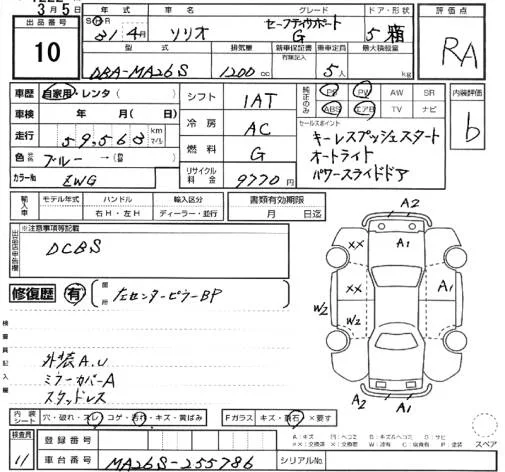 3月5日
出品番号
10
年式
車名
グレード
ドア・形状
31 4月
ソリオ
セーフティサポート
G
5 箱
型式
排気量
新車保証書
有限記入
乗車定員
最大積載量
DBA-MA26S
1200 cc
5人
kg
評価点
RA
車歴
自家用・レンタ( )
車検
年 月( 日)
走行
59,563 km
マイル
色
ブルー →(替 )
カラーNo
ZWG
シフト
1AT
冷房
AC
燃料
G
リサイクル料金
9770 円
純正のみ
PS PW AW SR
ABS エアB TV ナビ
セールスポイント
キーレスプッシュスタート
オートライト
パワースライドドア
内装評価
b
輸入車
モデル年式
ハンドル
右H・左H
輸入区分
ディーラー・並行
書類有効期限
月 日迄
※注意事項等記載
DCBS
修復歴 有
箇所
左センターピラーBP
検査員記入欄
外装A.U
ミラーカバーA
スタッドレス
A2
A1
XX
XX
W2
W2
A1
A2
A1
A2
内装シート
穴・破れ・スレ・コゲ・汚れ・キズ・黄ばみ
Fガラス
キズ・飛石・×要す
A:キズ
スペア
検査員
11
登録番号
車台番号
MA26S-255786
シリアルNo.